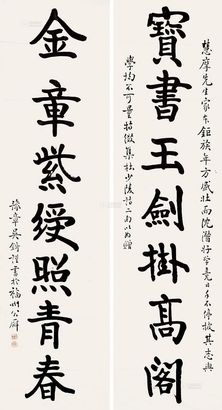 慧摩先生家本鉅族年方盛壯而沈潛好學竟日手不停披其志與
寶書玉劍掛高閣
學均不可量特綴集杜少陵詩二句以為贈
金章紫綬照青春
豫章吳謹書於福州公廨